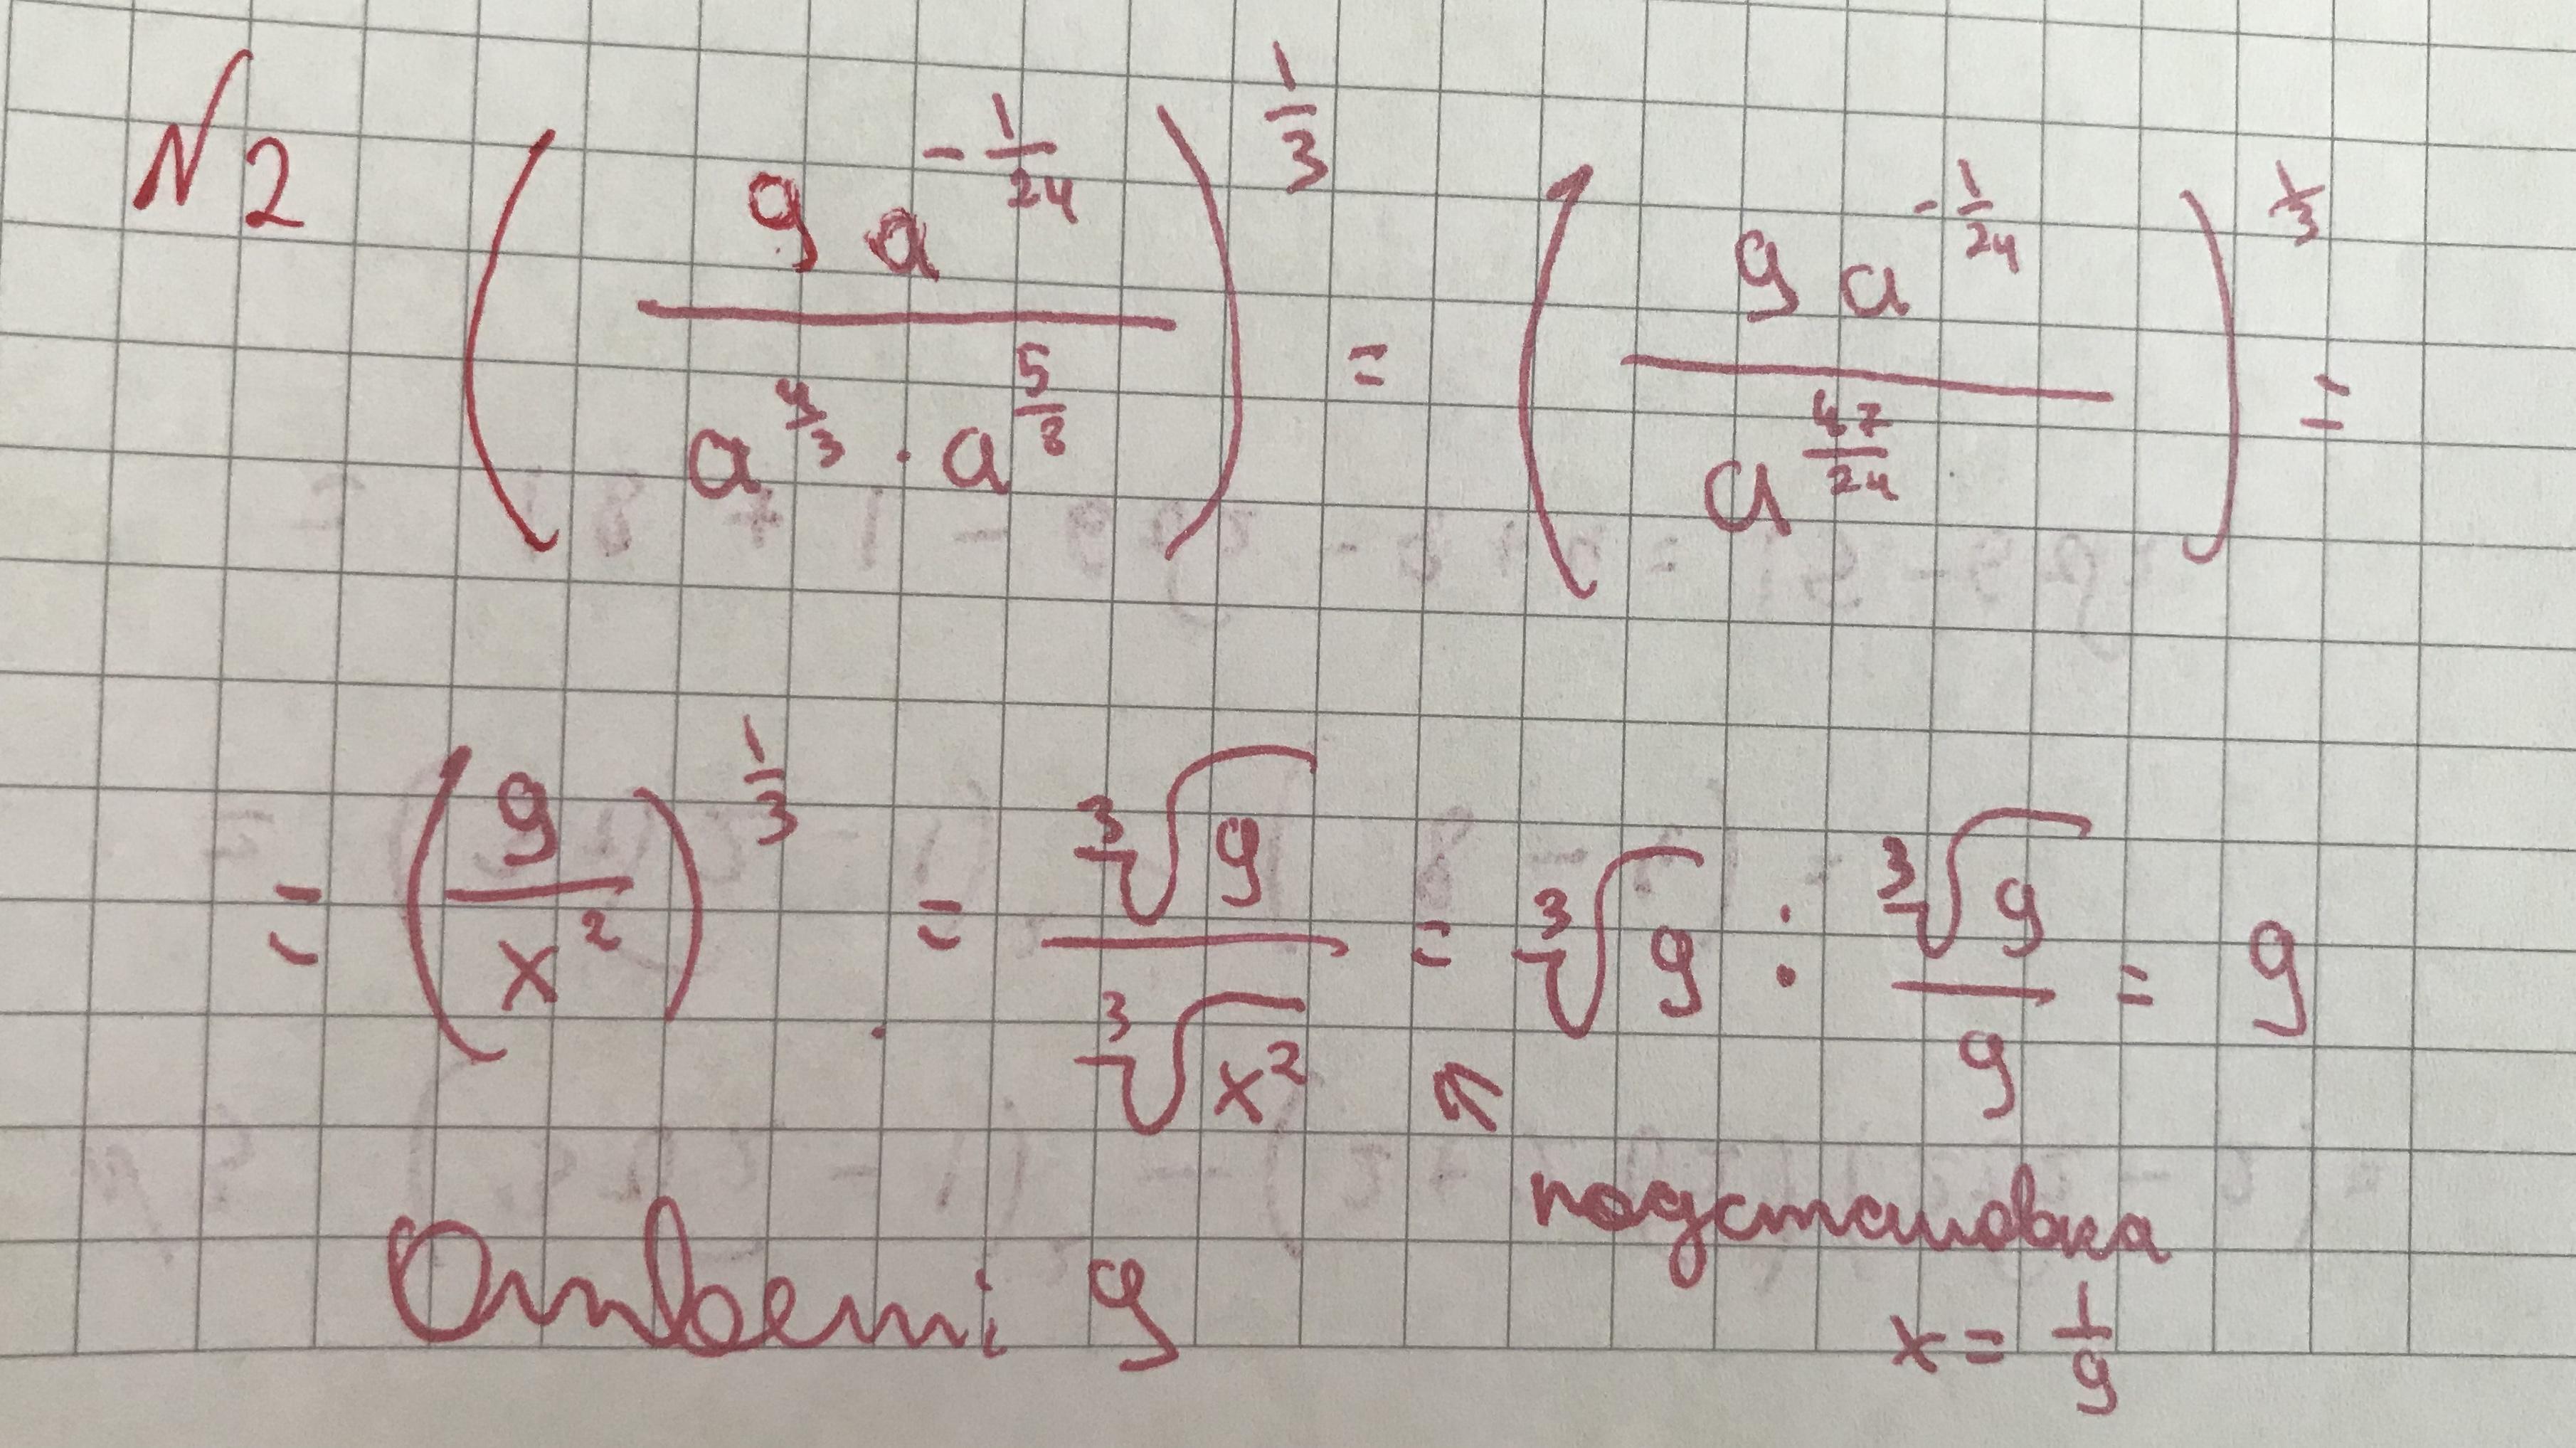 N2 (9a^(-1/24) / (a^(4/3) · a^(5/8)))^(1/3) = (9a^(-1/24) / a^(47/24))^(1/3) =
= (9/x²)^(1/3) = ∛9 / ∛x² = ∛9 : ∛9/9 = 9
подстановка
Ответ: 9
x = 1/9